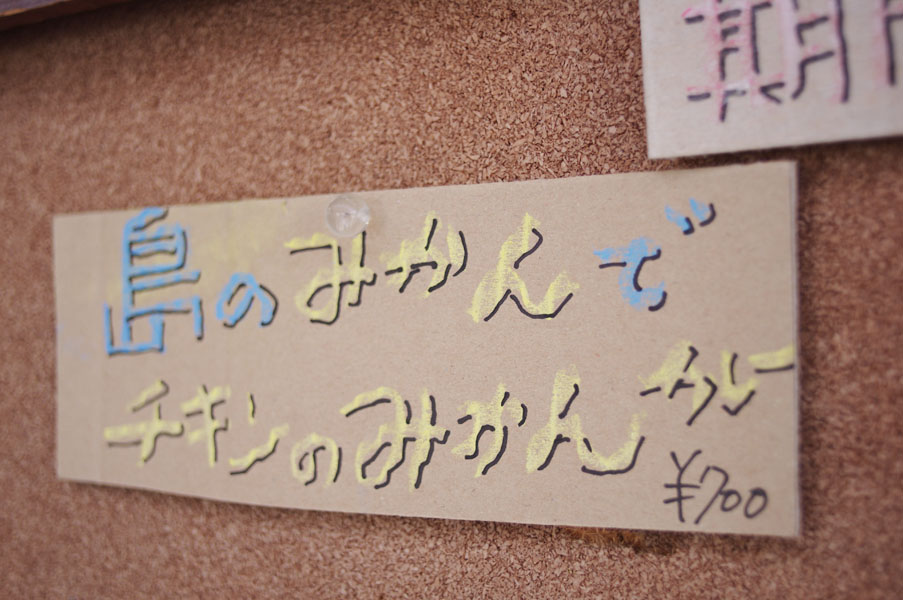 島のみかんで
チキンのみかんカレー
¥700